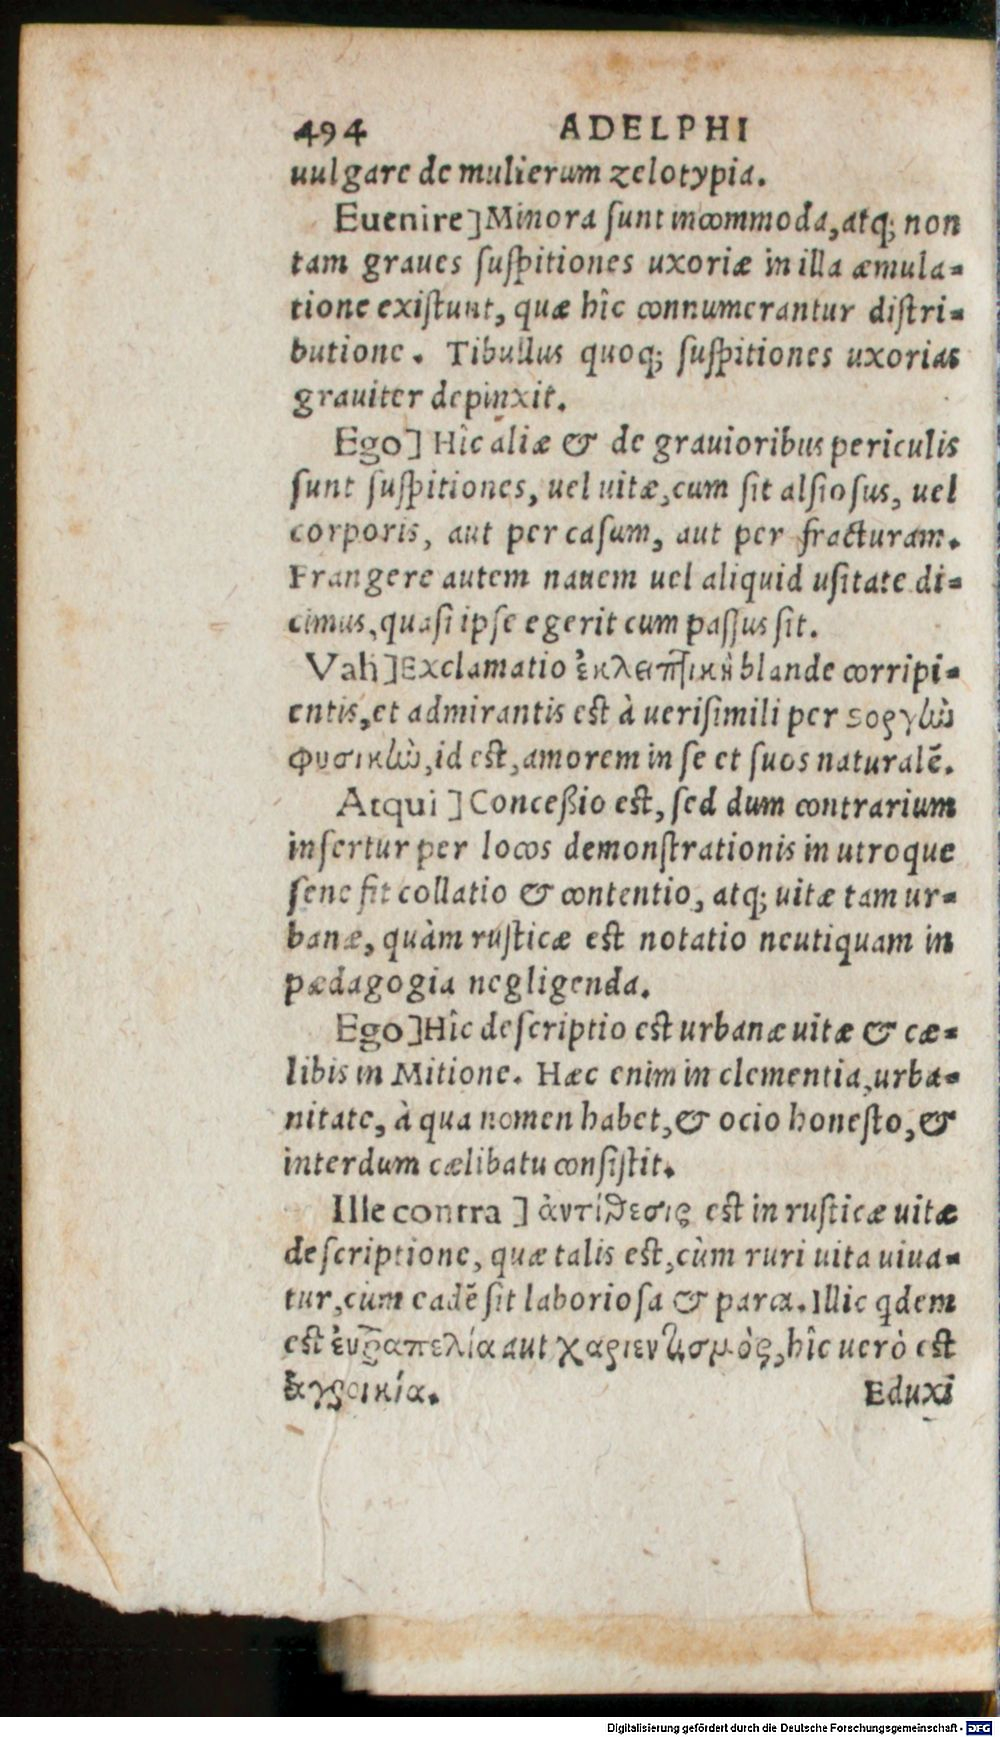 494 ADELPHI
uulgare de mulierum zelotypia.
Euenire] Minora sunt incommoda, atq; non
tam graues suspitiones uxoriæ in illa æmula-
tione existunt, quæ hîc connumerantur distri-
butione. Tibullus quoq; suspitiones uxorias
grauiter depinxit.
Ego] Hîc aliæ & de grauioribus periculis
sunt suspitiones, uel uitæ, cum sit alsiosus, uel
corporis, aut per casum, aut per fracturam.
Frangere autem nauem uel aliquid usitate di-
cimus, quasi ipse egerit cum passus sit.
Vah] Exclamatio blande corripi-
entis, et admirantis est à uerisimili per σοργὼ
φυσικὼ, id est, amorem in se et suos naturalẽ.
Atqui] Conceßio est, sed dum contrarium
infertur per locos demonstrationis in utroque
sene fit collatio & contentio, atq; uitæ tam ur-
banæ, quàm rusticæ est notatio neutiquam in
pædagogia negligenda.
Ego] Hîc descriptio est urbanæ uitæ & cæ-
libis in Mitione. Hæc enim in clementia, urba-
nitate, à qua nomen habet, & ocio honesto, &
interdum cælibatu consistit.
Ille contra] ἀντίθεσις est in rusticæ uitæ
descriptione, quæ talis est, cùm ruri uita uiua-
tur, cùm eadẽ sit laboriosa & parca. Illic qdem
est ἐυτραπελία aut χαριεντισμὸς, hîc uerò est
ἀγροικία. Eduxi
Digitalisierung gefördert durch die Deutsche Forschungsgemeinschaft - DFG